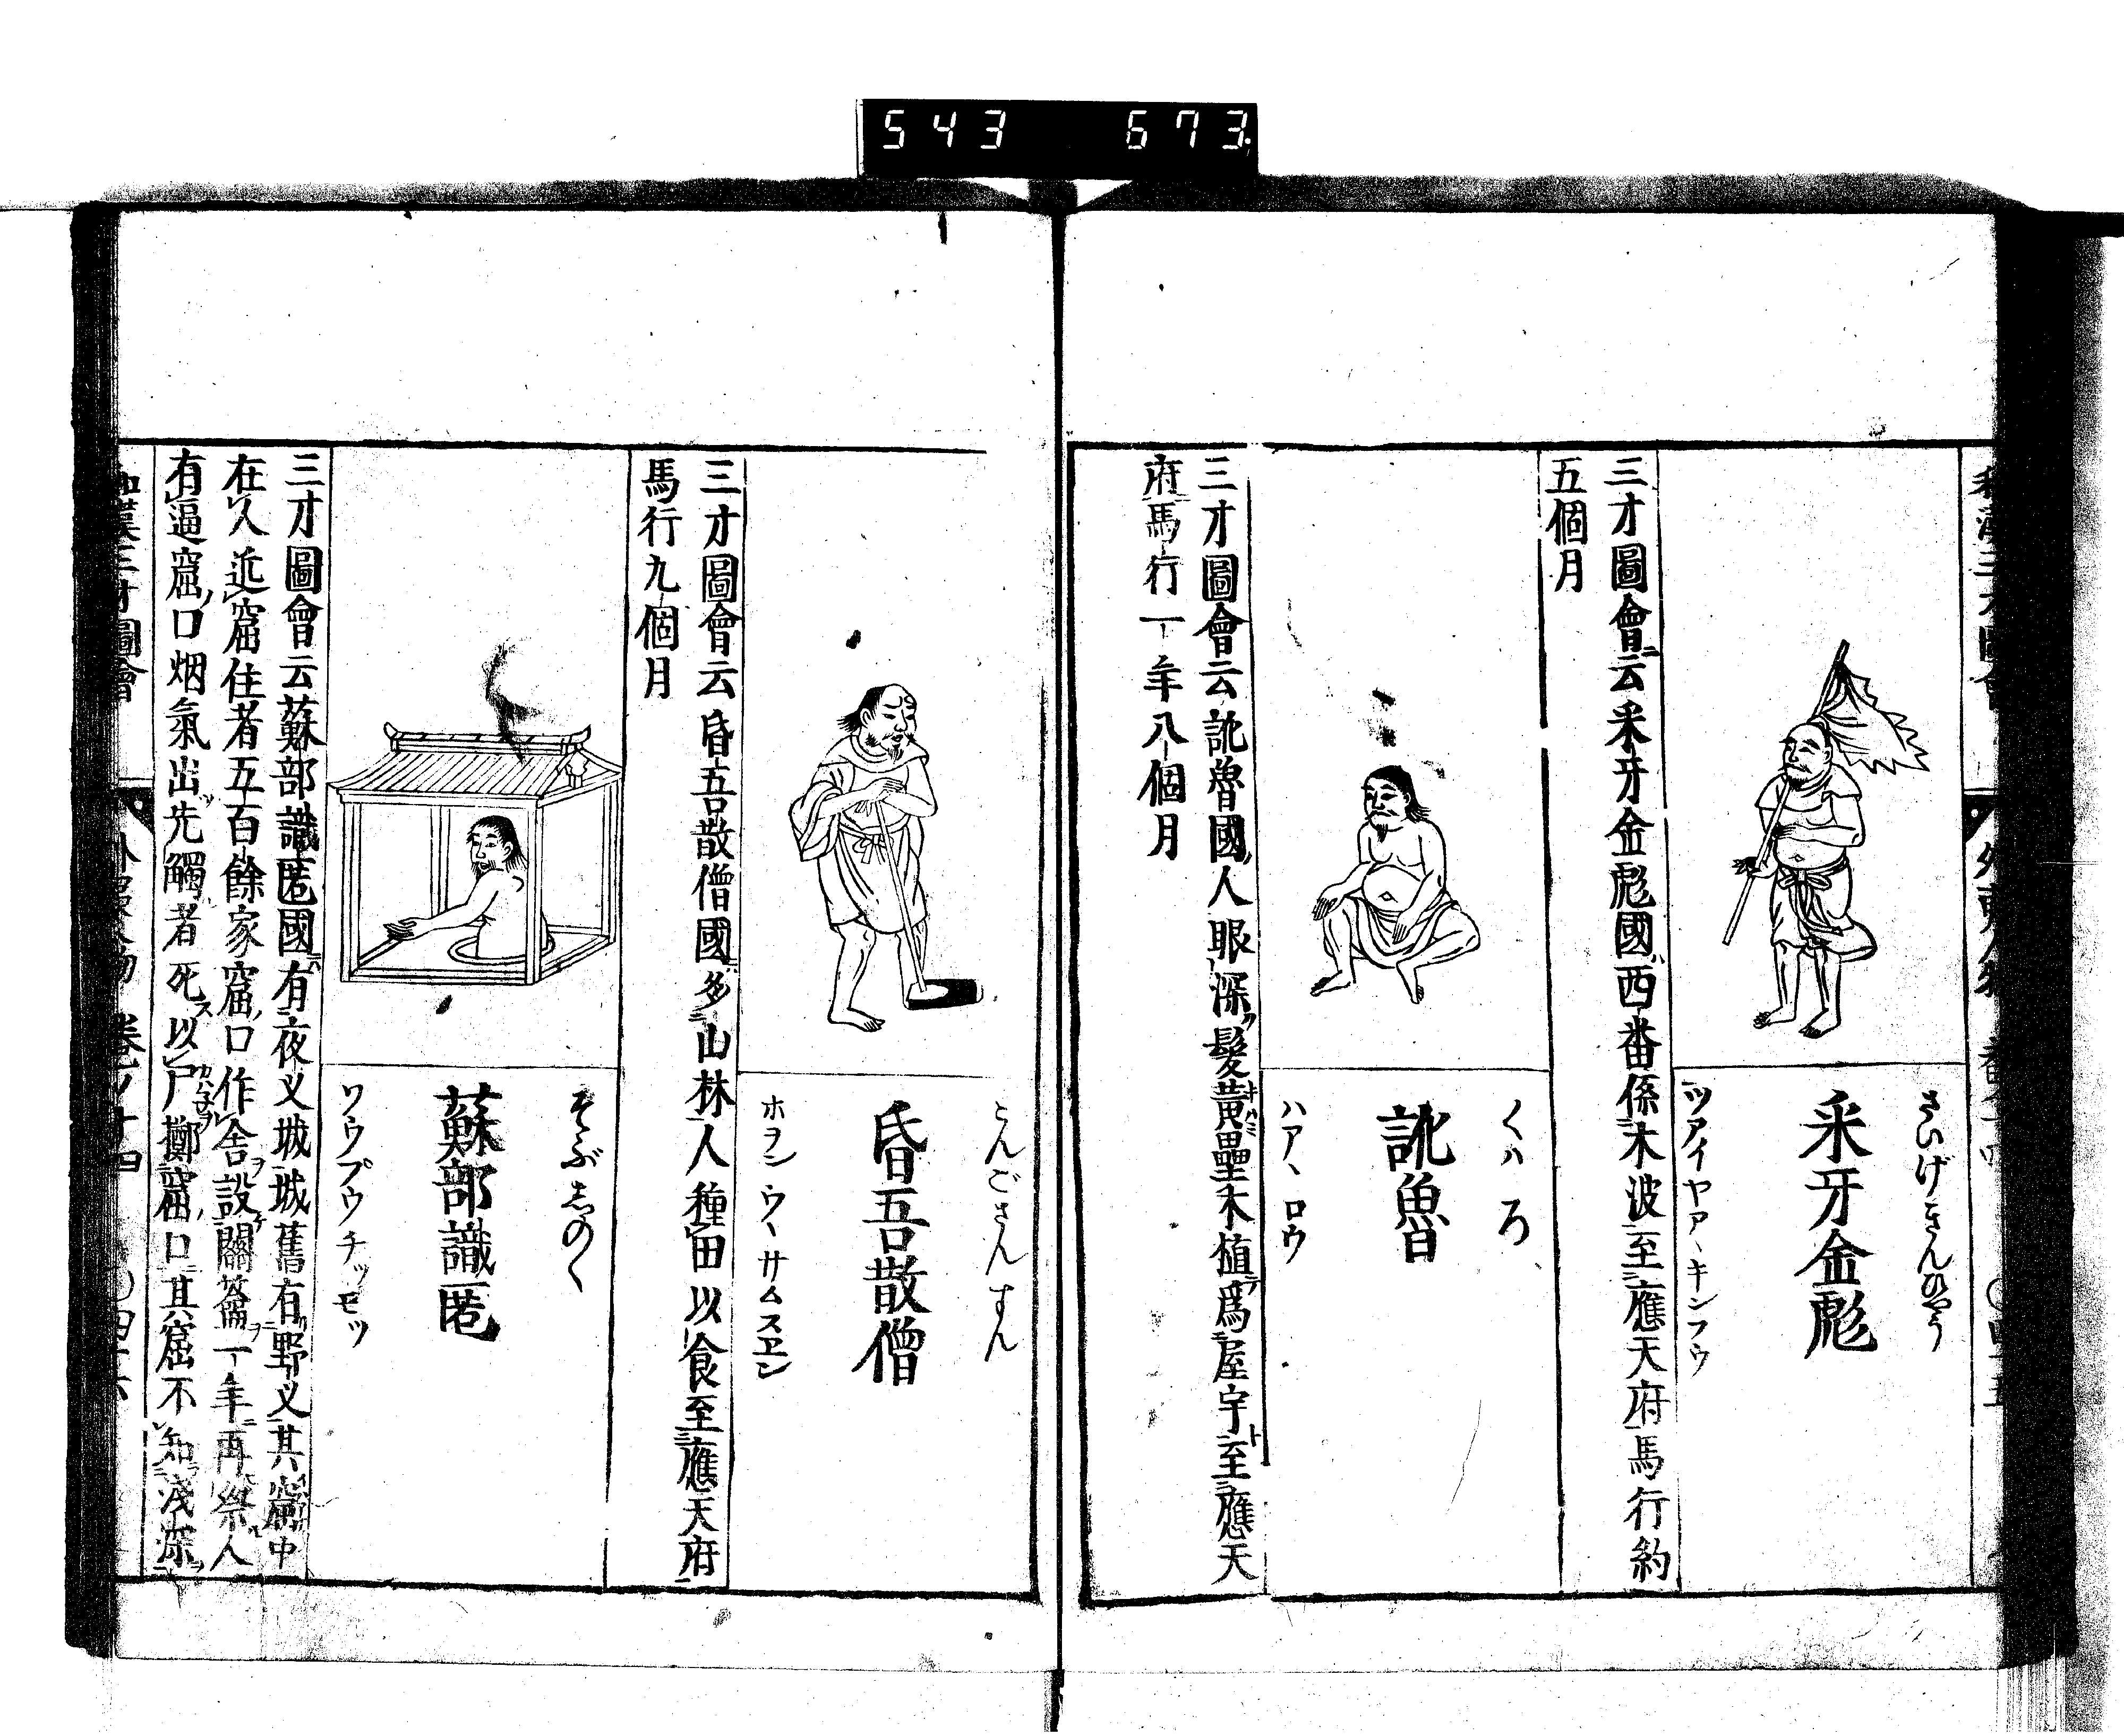 543 673
和漢三才圖會 外夷人物 卷之十四
さいげきんひやう
采牙金彪
ツアイ ヤアヽ キン フウ
三才圖會云采牙金彪國ハ西番係木波至應天府馬行約
五個月
くハろ
訛魯
ハアヽ ロウ
三才圖會云訛魯國ノ人眼深ク髮黄壘木植爲屋宇至應天
府馬行一年八個月
こんごさんすん
昏吾散僧
ホヲン ウヽ サムスヱン
三才圖會云昏吾散僧國多山林人種田以食至應天府
馬行九個月
そぶしのく
蘇部識匿
ワウ プウ チッ モッ
三才圖會云蘇部識匿國ハ有夜乂城城舊有野乂其窟中
在人近窟住者五百餘家窟口作舍設關籥一年再祭人
有逼窟ノ口烟氣出先觸者死ス以尸擲窟口其窟不知淺深
和漢三才圖會 外夷人物 卷之十四